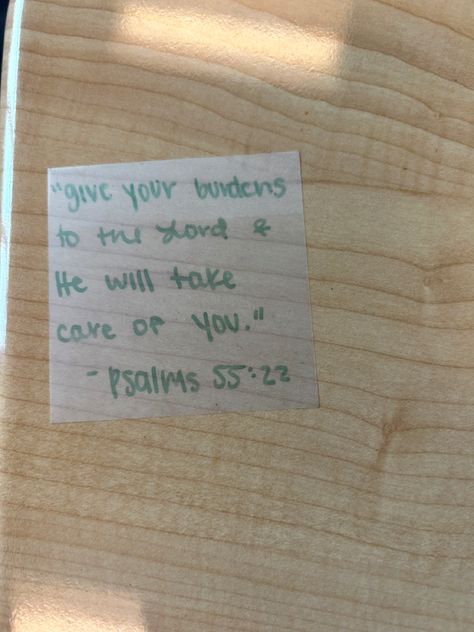 "give your burdens
to the Lord &
He will take
care of you."
- psalms 55:22